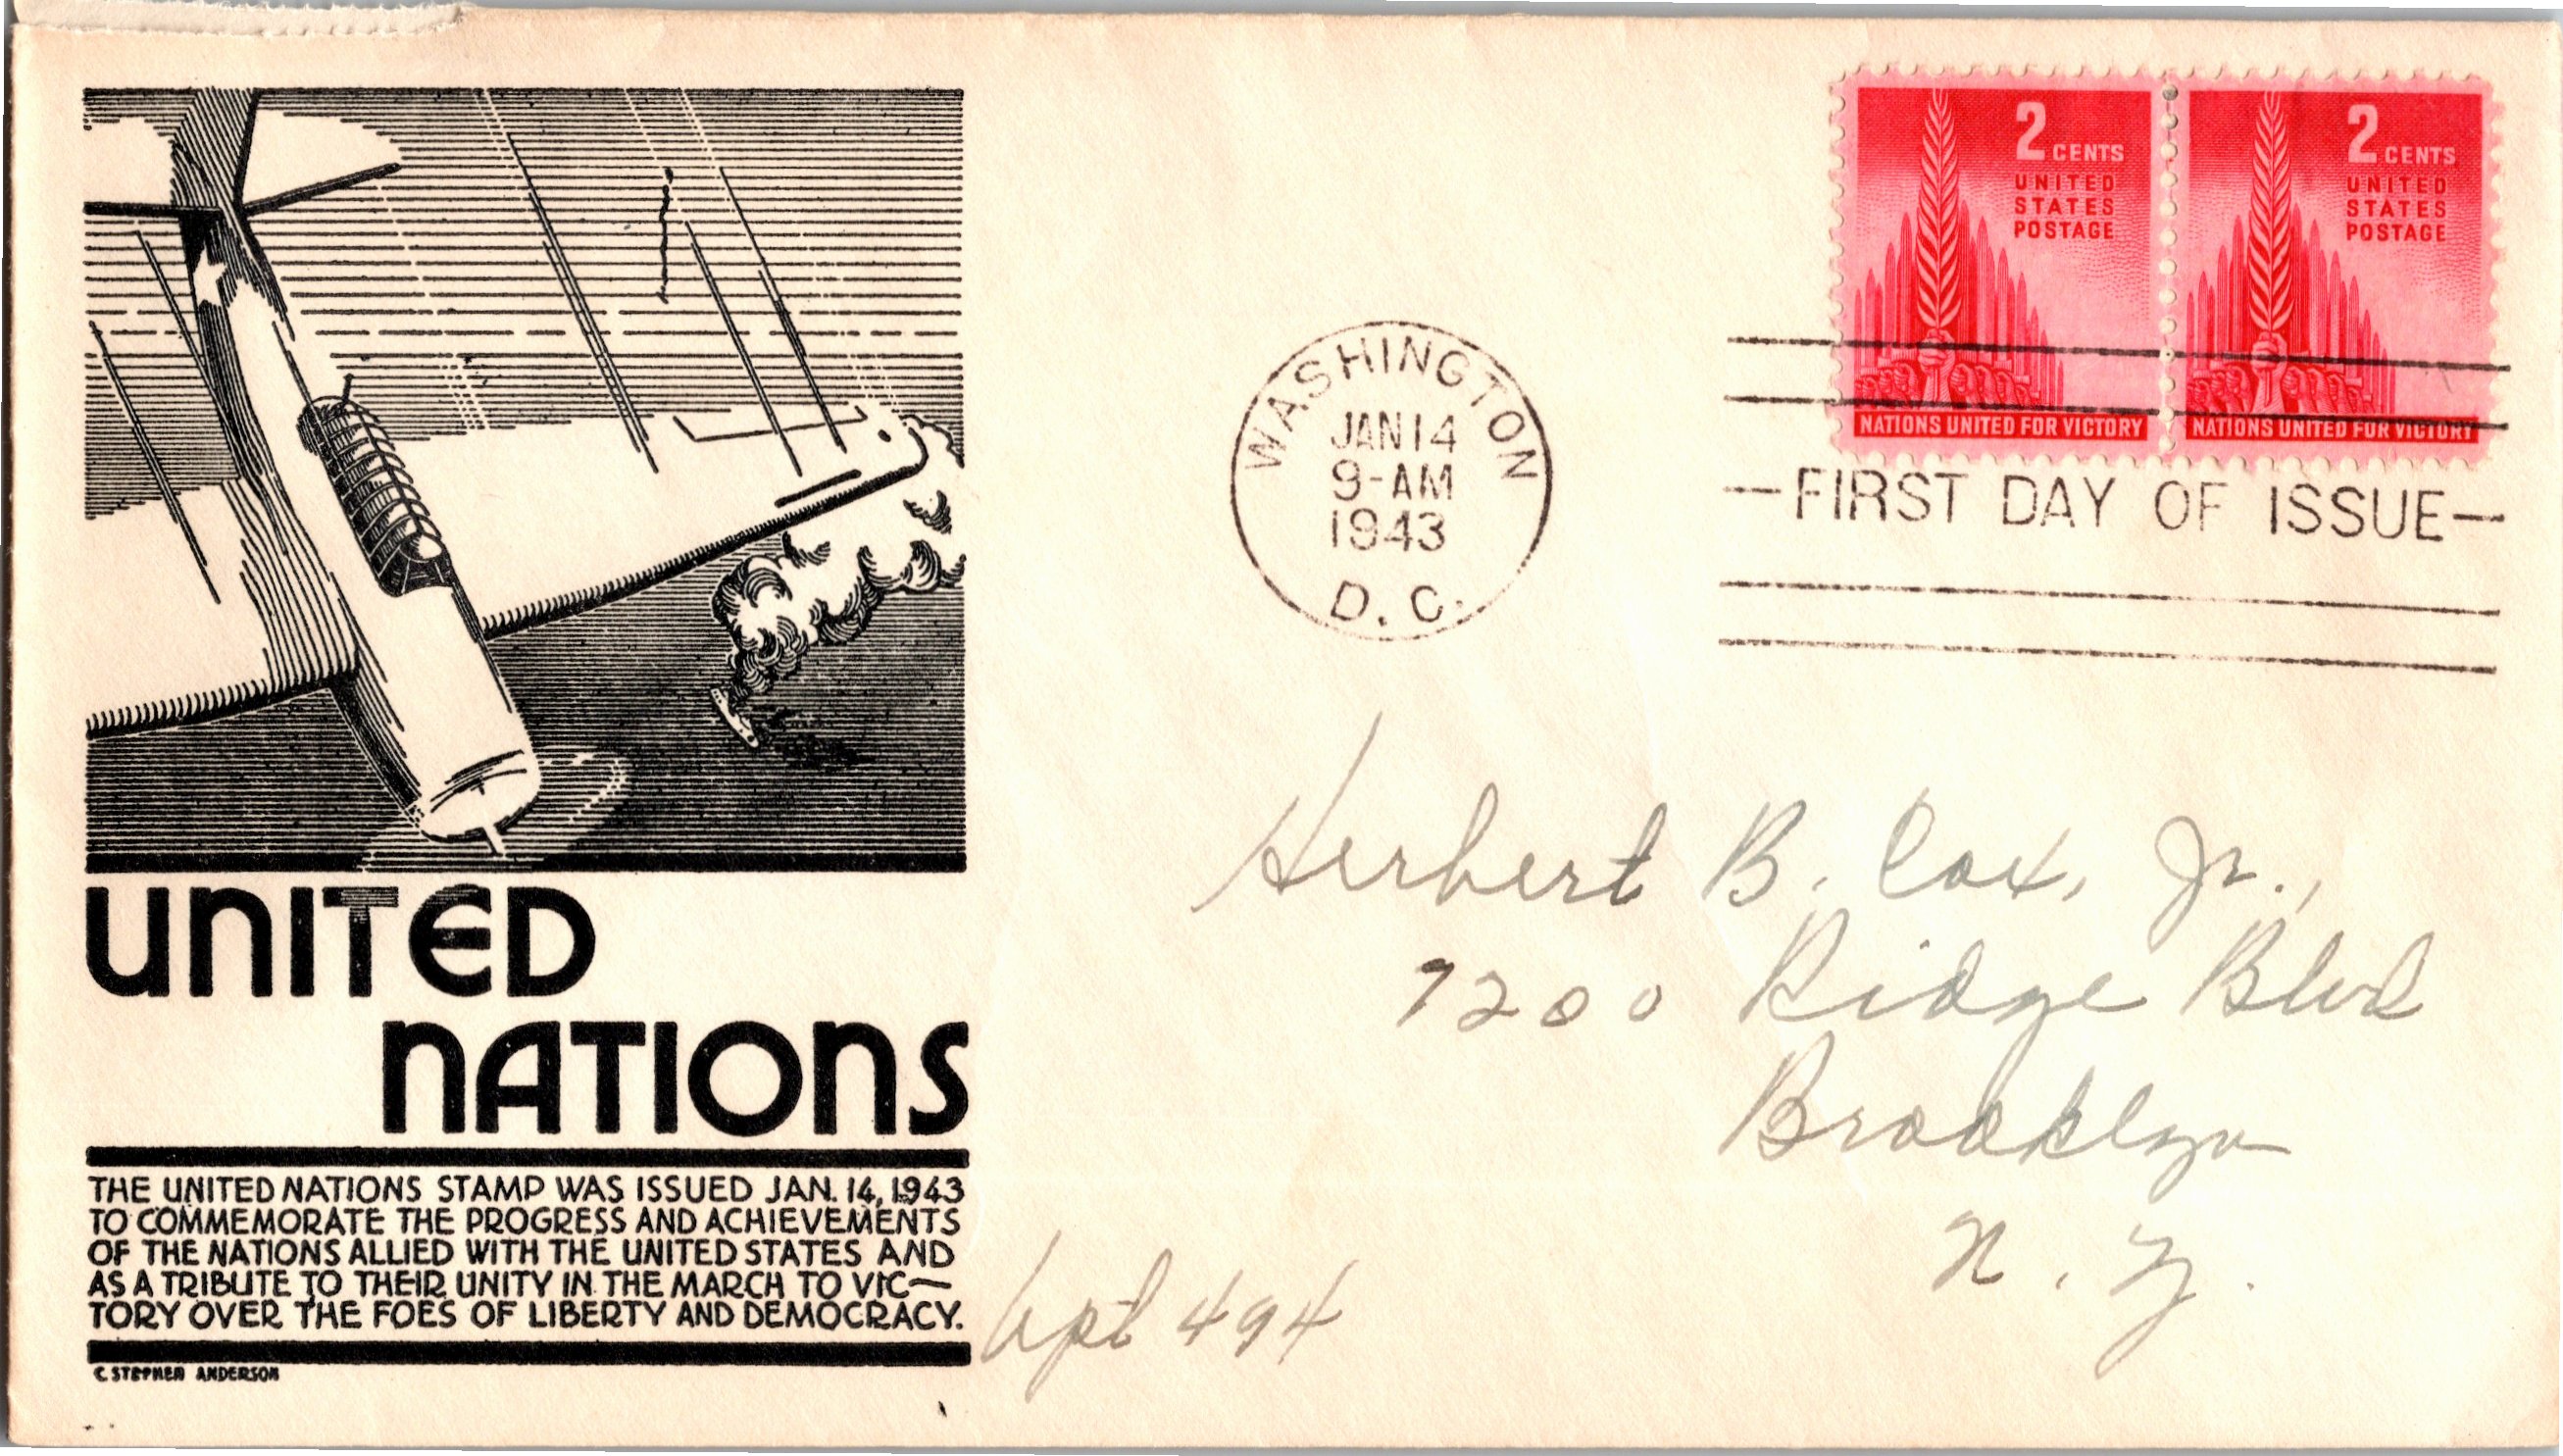 2 CENTS
UNITED
STATES
POSTAGE
NATIONS UNITED FOR VICTORY
2 CENTS
UNITED
STATES
POSTAGE
NATIONS UNITED FOR VICTORY
WASHINGTON
JAN 14
9-AM
1943
D. C.
—FIRST DAY OF ISSUE—
Herbert B. Cox, Jr.,
7200 Ridge Blvd
Brooklyn
N. Y.
Apt 494
UNITED
NATIONS
THE UNITED NATIONS STAMP WAS ISSUED JAN. 14, 1943
TO COMMEMORATE THE PROGRESS AND ACHIEVEMENTS
OF THE NATIONS ALLIED WITH THE UNITED STATES AND
AS A TRIBUTE TO THEIR UNITY IN THE MARCH TO VIC—
TORY OVER THE FOES OF LIBERTY AND DEMOCRACY.
C. STEPHEN ANDERSON